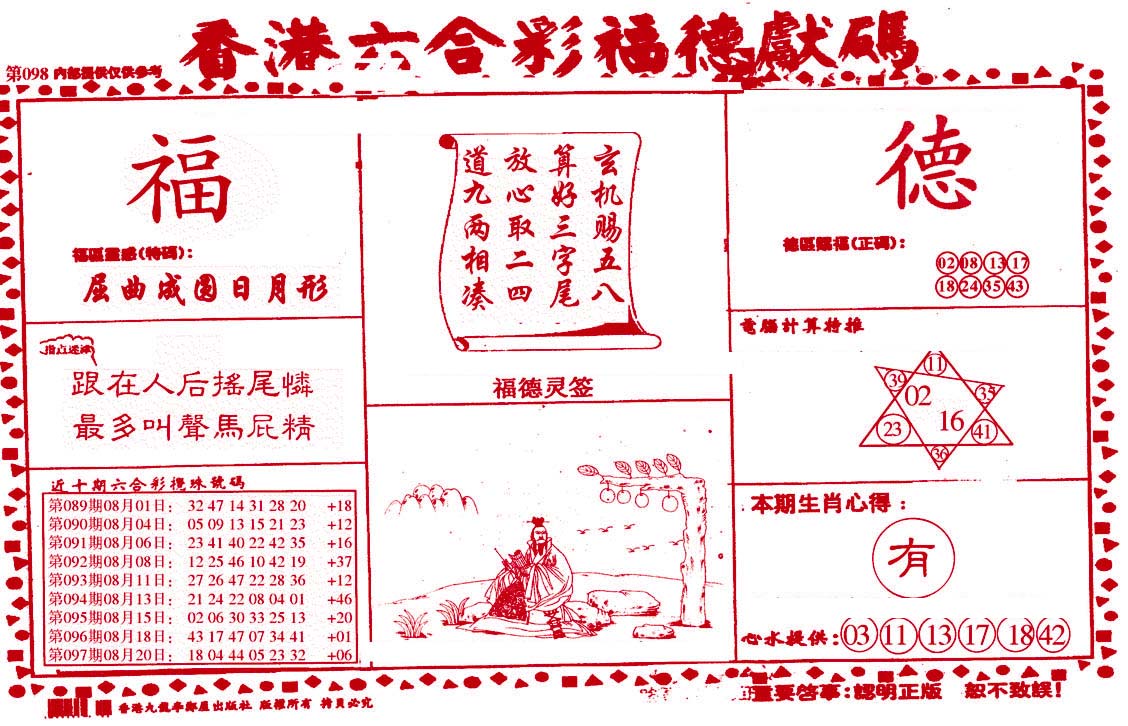 香港六合彩福德獻碼
第098 内部提供仅供参考
福
福區靈感(特碼):
屈曲成圆日月形
指点迷津
跟在人后搖尾憐
最多叫聲馬屁精
近十期六合彩攪珠號碼
第089期08月01日: 32 47 14 31 28 20 +18
第090期08月04日: 05 09 13 15 21 23 +12
第091期08月06日: 23 41 40 22 42 35 +16
第092期08月08日: 12 25 46 10 42 19 +37
第093期08月11日: 27 26 47 22 28 36 +12
第094期08月13日: 21 24 22 08 04 01 +46
第095期08月15日: 02 06 30 33 25 13 +20
第096期08月18日: 43 17 47 07 34 41 +01
第097期08月20日: 18 04 44 05 23 32 +06
玄机赐五八
算好三字尾
放心取二四
道九两相凑
福德灵签
德
德區賜福(正碼):
02 08 13 17
18 24 35 43
電腦計算特推
11
39 02 35
23 16 41
36
本期生肖心得:
有
心水提供:03 11 13 17 18 42
香港九龍 出版社 版權所有 拷貝必究
重要啓事:認明正版 恕不致誤!